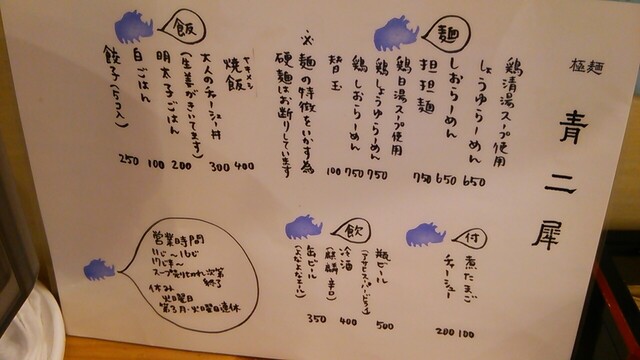 極麺 青二犀
麺
鶏清湯スープ使用
しょうゆらーめん 650
しおらーめん 650
担担麺 750
鶏白湯スープ使用
鶏しょうゆらーめん 750
鶏しおらーめん 750
替玉 100
※麺の特徴をいかす為
硬麺はお断りしています
飯
ヤキメシ
焼飯 400
大人のチャーシュー丼 300
(生姜がきいてます)
明太子ごはん 200
白ごはん 100
餃子(5コ入) 250
付
煮たまご 100
チャーシュー 200
飲
瓶ビール 500
(アサヒスーパードライ)
冷酒 400
(麒麟 辛口)
缶ビール 350
(よなよなエール)
営業時間
11じ〜16じ
17じ半〜
スープ売り切れ次第
終了
休み
火曜日
第3月・火曜日連休